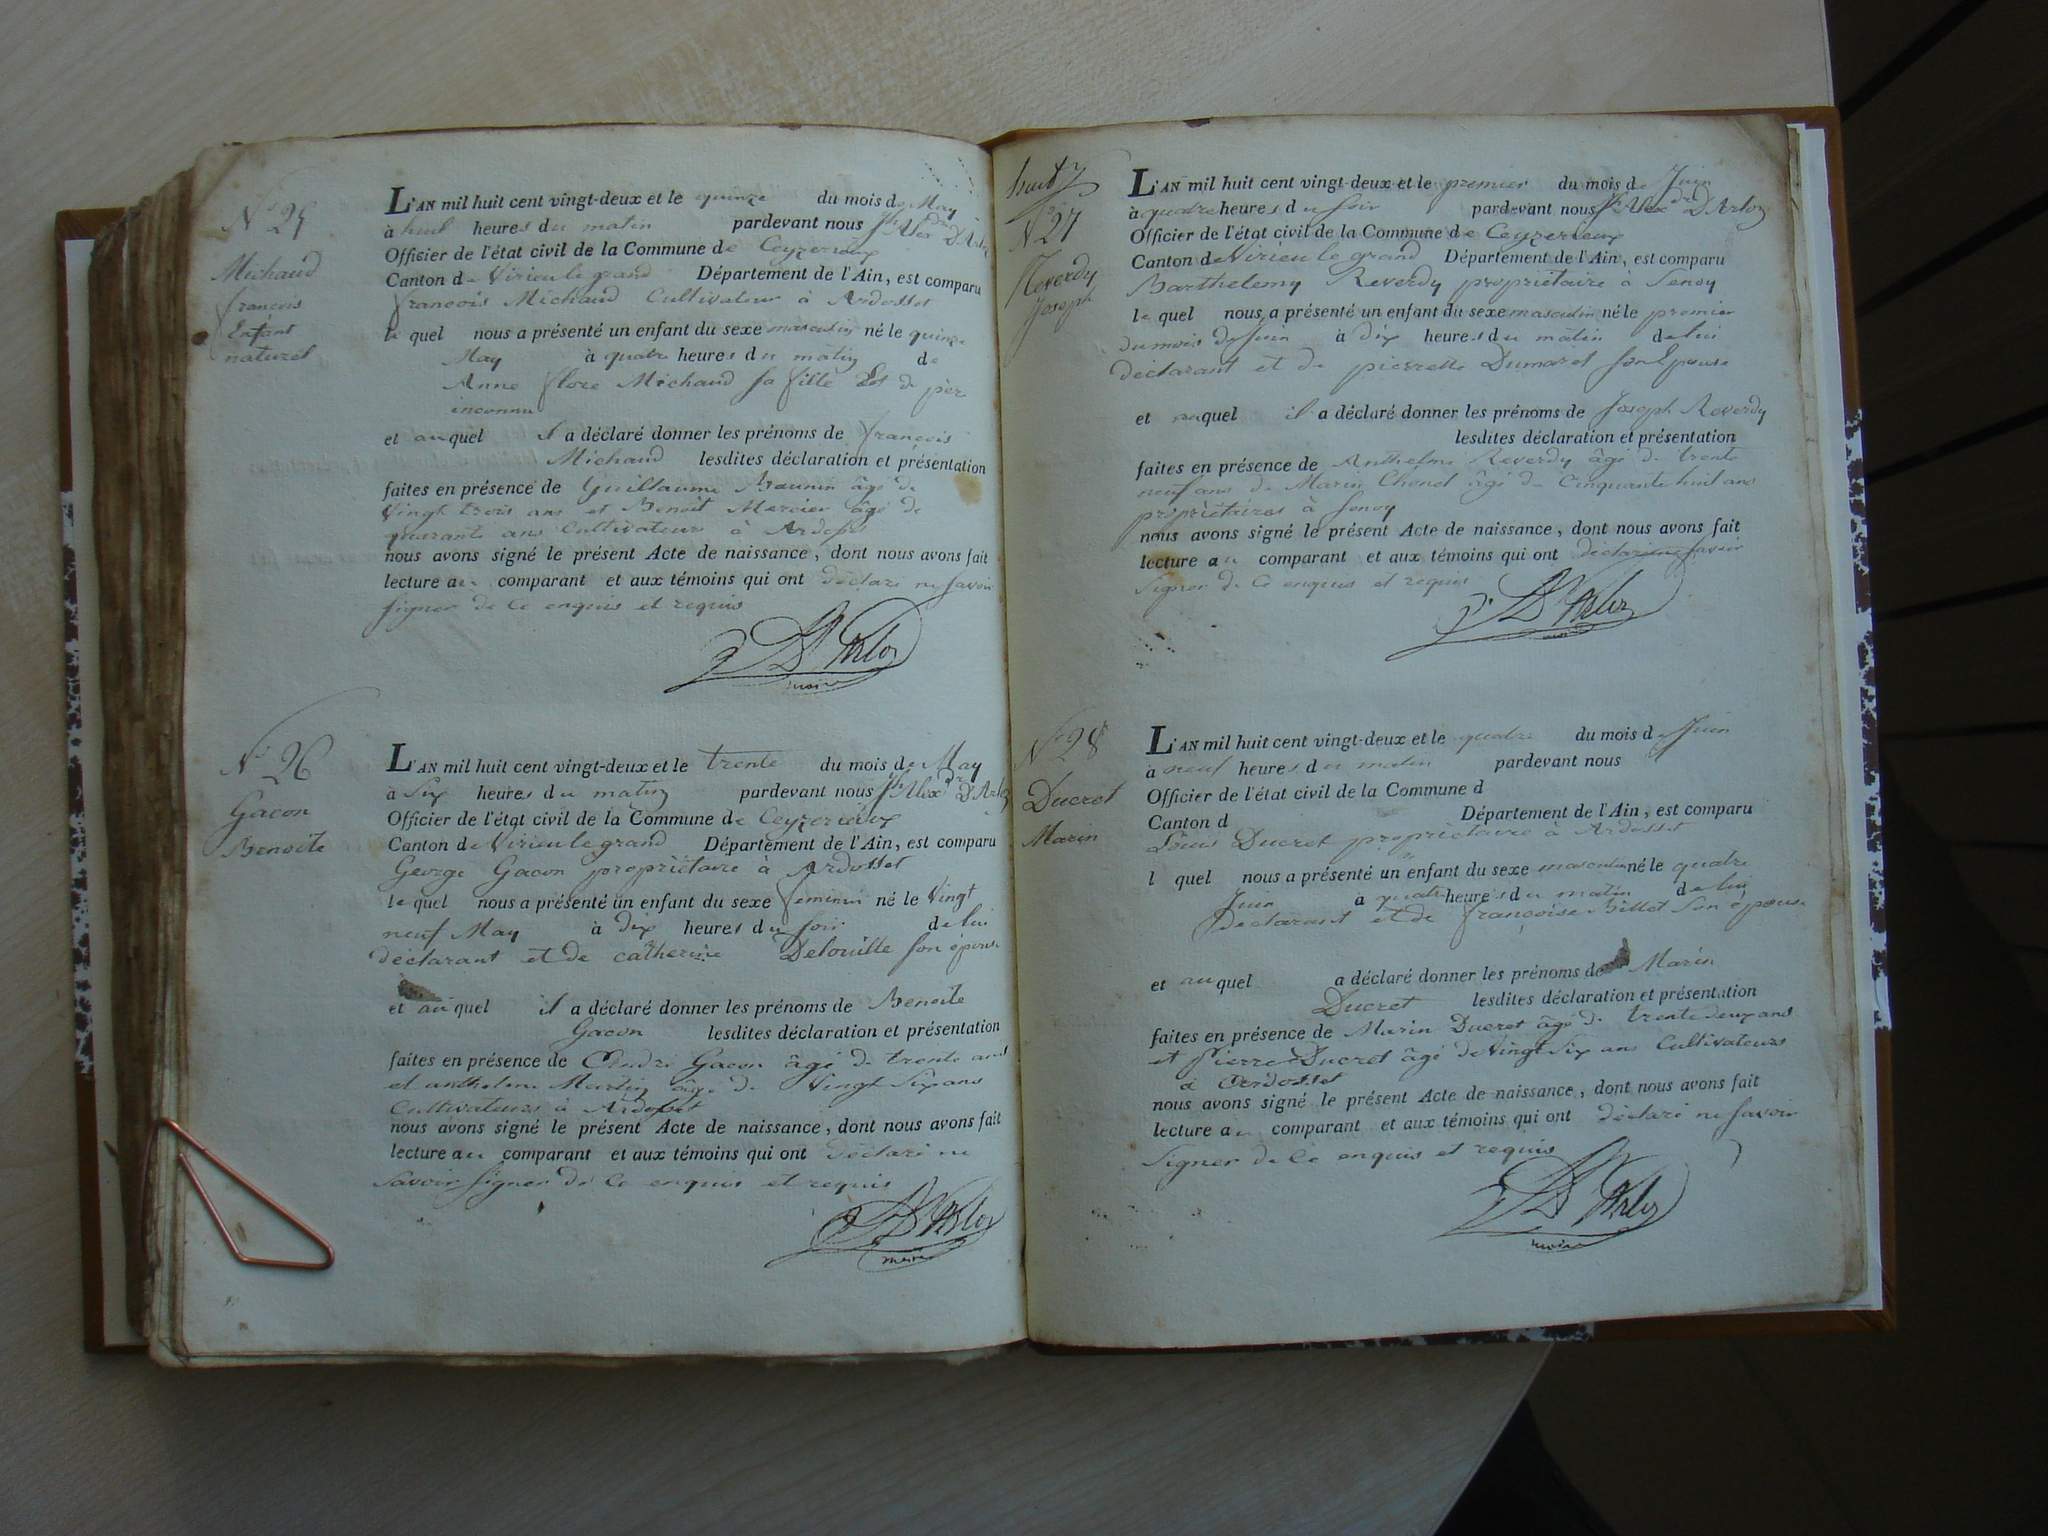 N° 25
Michaud
françois
Enfant
naturel
L'AN mil huit cent vingt-deux et le quinze du mois de May
à huit heures du matin pardevant nous Jh Alexdre D'Arloz
Officier de l'état civil de la Commune de Ceyzerieux
Canton de Virieu le grand Département de l'Ain, est comparu
françois Michaud Cultivateur à Ardosset
le quel nous a présenté un enfant du sexe masculin né le quinze
May à quatre heures du matin de
Anne flore Michaud sa fille Et de père
inconnu
et auquel il a déclaré donner les prénoms de françois
Michaud lesdites déclaration et présentation
faites en présence de Guillaume âgé de
vingt trois ans et Benoit Mercier âgé de
quarante ans Cultivateurs à Ardosset
nous avons signé le présent Acte de naissance, dont nous avons fait
lecture au comparant et aux témoins qui ont déclaré ne savoir
signer de ce enquis et requis
D'Arloz
maire
N° 26
Gacon
Benoite
L'AN mil huit cent vingt-deux et le trente du mois de May
à Six heures du matin pardevant nous Jh Alexdre D'Arloz
Officier de l'état civil de la Commune de Ceyzerieux
Canton de Virieu le grand Département de l'Ain, est comparu
George Gacon propriétaire à Ardosset
le quel nous a présenté un enfant du sexe feminin né le Vingt
neuf May à dix heures du soir de lui
déclarant et de catherine Delouille son épouse
et auquel il a déclaré donner les prénoms de Benoite
Gacon lesdites déclaration et présentation
faites en présence de André Gacon âgé de trente ans
et anthelme Martin âgé de Vingt Six ans
Cultivateurs à Ardosset
nous avons signé le présent Acte de naissance, dont nous avons fait
lecture au comparant et aux témoins qui ont déclaré ne
savoir signer de ce enquis et requis
D'Arloz
maire
huit
N° 27
Reverdy
Joseph
L'AN mil huit cent vingt-deux et le premier du mois de Juin
à quatre heures du soir pardevant nous Jh Alexdre D'Arloz
Officier de l'état civil de la Commune de Ceyzerieux
Canton de Virieu le grand Département de l'Ain, est comparu
Barthelemy Reverdy propriétaire à Senoy
le quel nous a présenté un enfant du sexe masculin né le premier
du mois de Juin à dix heures du matin de lui
déclarant et de pierrette Dumaret son Epouse
et auquel il a déclaré donner les prénoms de Joseph Reverdy
lesdites déclaration et présentation
faites en présence de Anthelme Reverdy âgé de trente
neuf ans de Marin Chenet âgé de Cinquante huit ans
propriétaires à Senoy
nous avons signé le présent Acte de naissance, dont nous avons fait
lecture au comparant et aux témoins qui ont déclaré ne savoir
signer de ce enquis et requis
D'Arloz
maire
N° 28
Ducret
Marin
L'AN mil huit cent vingt-deux et le quatre du mois de Juin
à neuf heures du matin pardevant nous
Officier de l'état civil de la Commune d
Canton d Département de l'Ain, est comparu
Louis Ducret propriétaire à Ardosset
l quel nous a présenté un enfant du sexe masculin né le quatre
Juin à quatre heures du matin de lui
Déclarant et de françoise Billet son épouse
et auquel a déclaré donner les prénoms de Marin
Ducret lesdites déclaration et présentation
faites en présence de Marin Ducret âgé de trente deux ans
et Pierre Ducret âgé de Vingt Six ans Cultivateurs
à Ardosset
nous avons signé le présent Acte de naissance, dont nous avons fait
lecture au comparant et aux témoins qui ont déclaré ne savoir
signer de ce enquis et requis
D'Arloz
maire